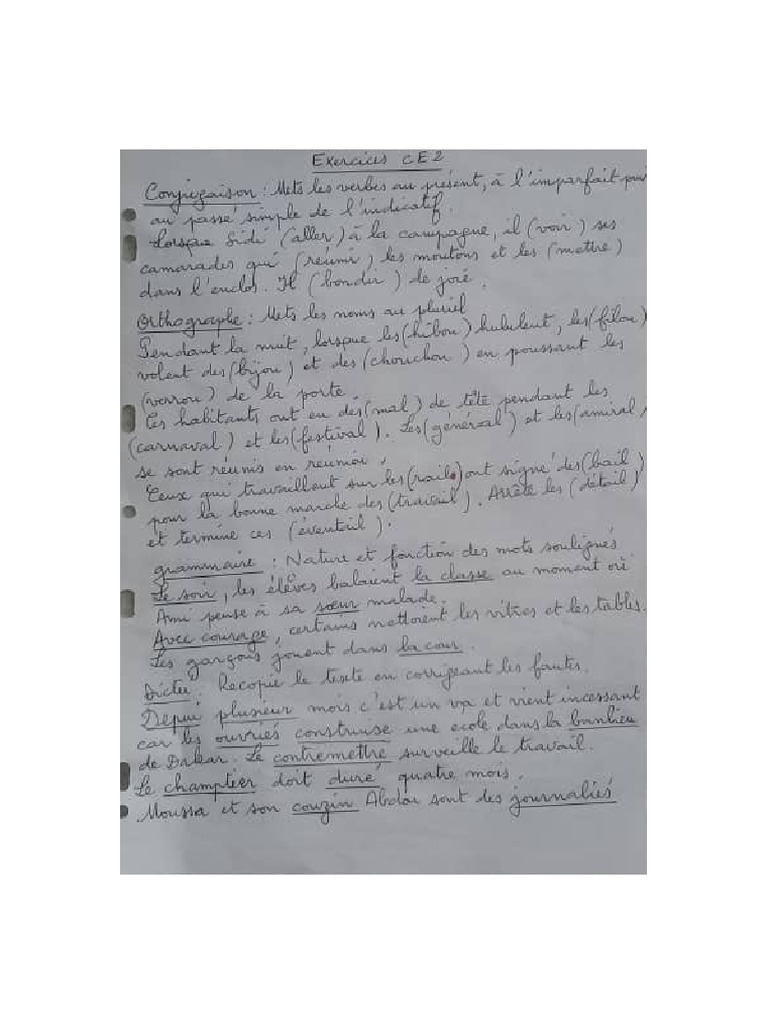 Exercices CE2
Conjugaison : Mets les verbes au présent, à l'imparfait puis
au passé simple de l'indicatif.
Lorsque Sidi (aller) à la campagne, il (voir) ses
camarades qui (réunir) les moutons et les (mettre)
dans l'enclos. Il (bondir) de joie.
Orthographe : Mets les noms au pluriel
Pendant la nuit, lorsque les (hibou) hululent, les (filou)
volent des (bijou) et des (chouchou) en poussant les
(verrou) de la porte.
Les habitants ont eu des (mal) de tête pendant les
(carnaval) et les (festival). Les (général) et les (amiral)
se sont réunis en réunion.
Ceux qui travaillent sur les (rails) ont signé des (bail)
pour la bonne marche des (travail). Arrête les (détail)
et termine ces (éventail).
grammaire : Nature et fonction des mots soulignés
Le soir, les élèves balaient la classe au moment où
Ami pense à sa sœur malade.
Avec courage, certains nettoient les vitres et les tables.
Les garçons jouent dans la cour.
Dictée : Recopie le texte en corrigeant les fautes.
Depui plusieur mois c'est un va et vient incessant
car les ouvriés construise une ecole dans la banlieu
de Dakar. Le contremettre surveille le travail.
Le champtier doit duré quatre mois.
Moussa et son couzin Abdou sont des journaliés